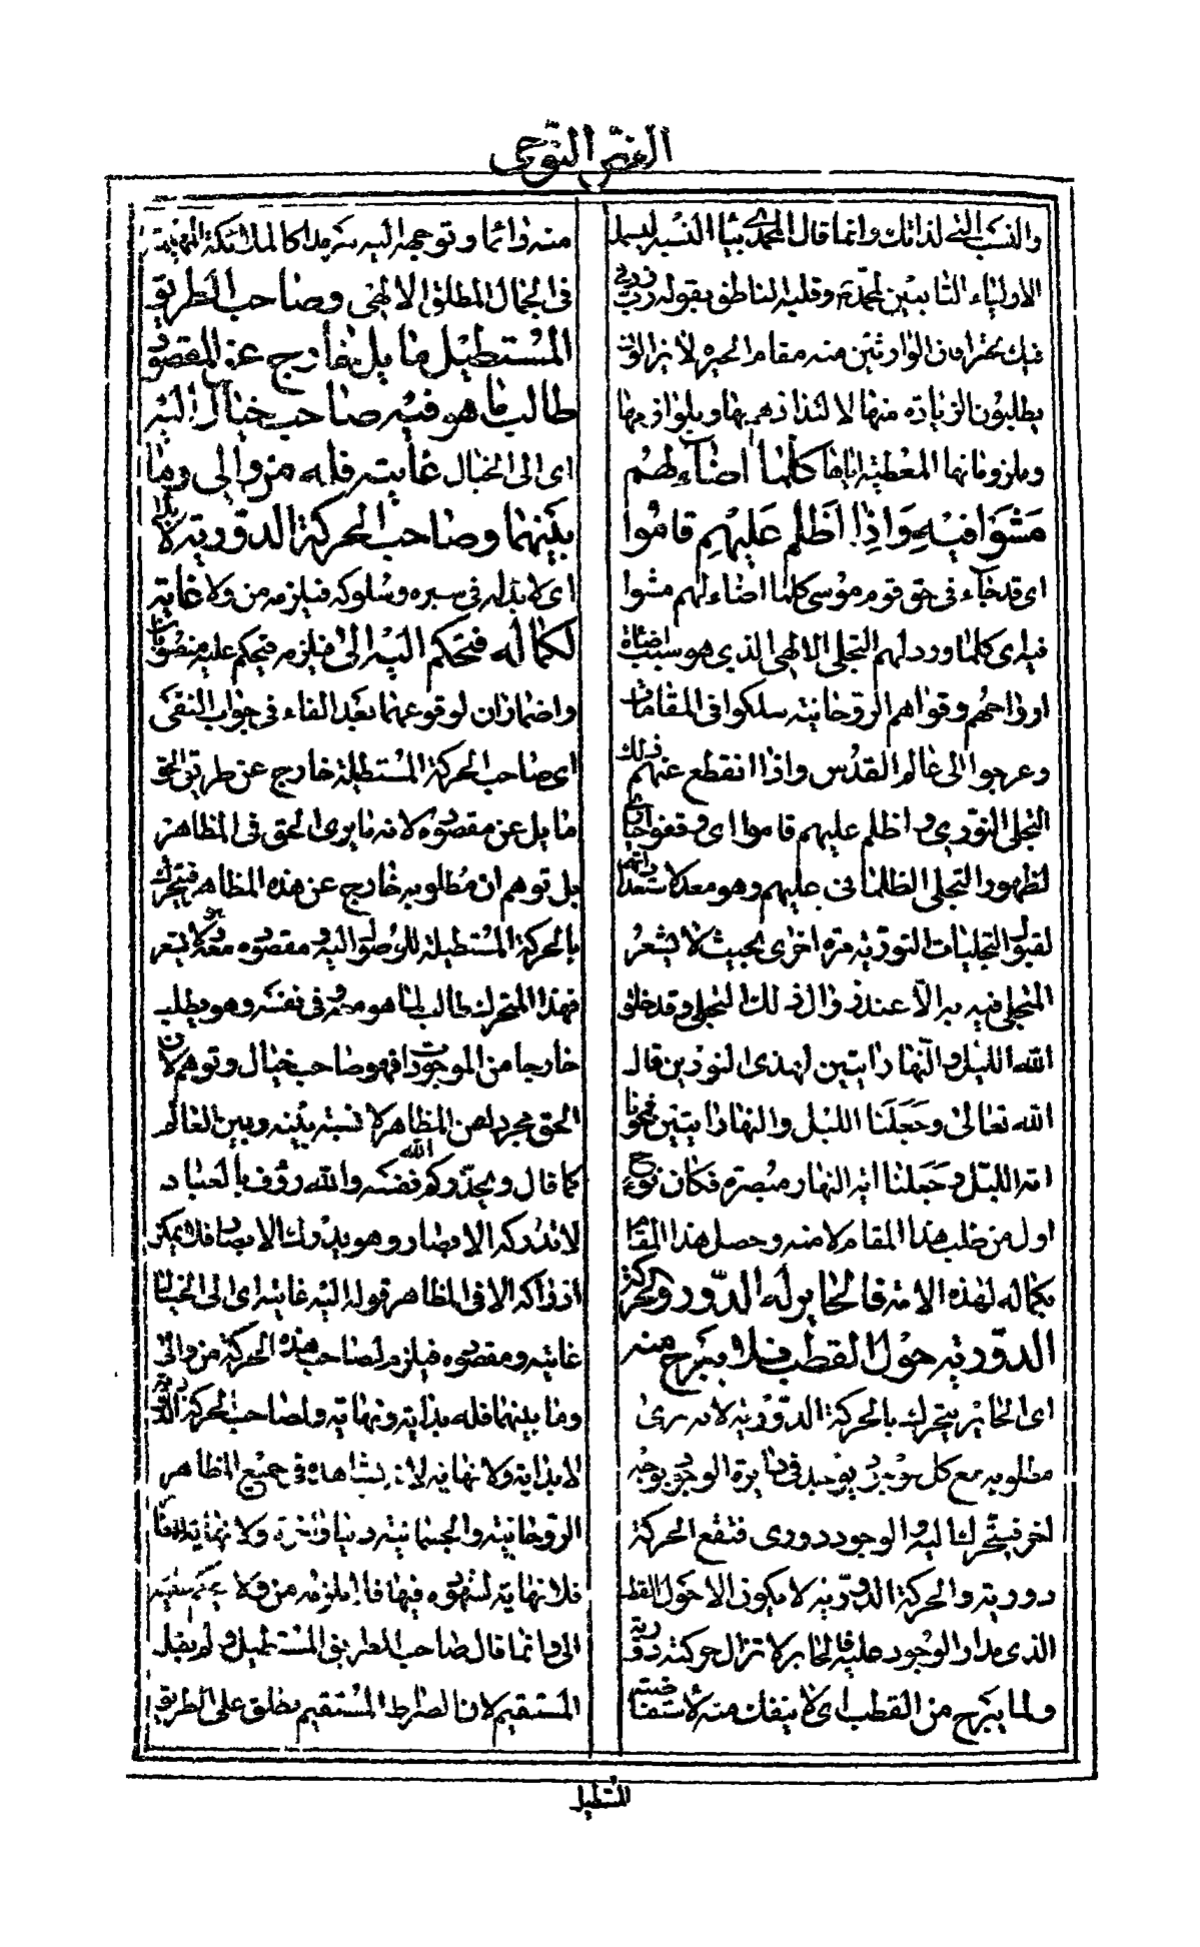 الفص النوحي
والنسب التي لذاتك وانما قال المحمدي بياء النسبة ليشمل
الاولياء التابعين لمحمد وقلبه الناطق بقوله رب زدني
فيك تحيرا فان الوارثين منه مقام الحيرة لا يزالون
يطلبون الزيادة منها لالتذاذهم بها وبلوازمها
وملزوماتها المعطية اياها كلما اضاء لهم
مَشَوْا فيهِ وَاِذا اَظْلَمَ عَلَيْهِم قاموا
اى قد جاء فى حق قوم موسى كلما اضاء لهم مشوا
فيه اى كلما ورد لهم التجلى الالهى الذى هو سبب اضاءة
ارواحهم وقواهم الروحانية سلكوا فى المقامات
وعرجوا الى عالم القدس واذا انقطع عنهم ذلك
التجلى النورى واظلم عليهم قاموا اى وقفوا حيارى
لظهور التجلى الظلمانى عليهم وهو معد لاستعداداتهم
لقبول التجليات النورية مرة اخرى بحيث لا يشعر
المتجلى فيه به الا عند زوال ذلك التجلى وقد خلق
الله الليل والنهار ايتين لهذى النورين قال
الله تعالى وجَعَلنَا الليل والنهار ايتين فمحونا
اية الليل وجعلنا اية النهار مبصرة فكان نوح
اول من طلب هذا المقام لامته وحصل هذا المقام
بكماله لهذه الامة فالحاير له الدور والحركة
الدورية حول القطب فلا يبرح منه
اى الحائر يتحرك بالحركة الدورية لانه يرى
مطلوبه مع كل موجود يوجد فى دايرة الوجود بوجه
اخر فيتحرك اليه والوجود دورى فتقع الحركة
دورية والحركة الدورية لا يكون الا حول القطب
الذى مدار الوجود عليه فالحاير لا تزال حركته دورية
ولما يبرح من القطب اى لا ينفك منه لاستفاضته
منه دائما وتوجهه اليه سرمدا كالملائكة المهيمة
فى الجمال المطلق الالهى وصاحب الطريق
المستطيل مايل خارج عن المقصود
طالب ما هو فيه صاحب خيال اليه
اى الى الخيال غايته فله من والى وما
بينهما وصاحب الحركة الدورية لا بدأ
اى لا بدأ له فى سيره وسلوكه فيلزمه من ولا غاية
لكماله فتحكم اليه الى فيلزمه فيحكم عليه منصوبان
واضماران لوقوعهما بعد الفاء فى جواب النفى
اى صاحب الحركة المستطيلة خارج عن طريق الحق
مايل عن مقصوده لانه ما يرى الحق فى المظاهر
بل توهم ان مطلوبه خارج عن هذه المظاهر فيتحرك
بالحركة المستطيلة للوصول اليه ومقصوده معه ولا يشعر
فهذا المتحرك طالب لما هو معه وفى نفسه وهو يطلبه
خارجا من الموجودات فهو صاحب خيال وتوهم لان
الحق مجردا عن المظاهر لا نسبة بينه وبين العالم
كما قال ويحذركم الله نفسه والله رؤف بالعباد
لا تدركه الابصار وهو يدرك الابصار فلا يمكن
ادراكه الا فى المظاهر قوله اليه غايته اى الى الخيال
غايته ومقصوده فيلزم لصاحب هذه الحركة من والى
وما بينهما فله بداية ونهاية ولصاحب الحركة الدورية
لا بداية ولا نهاية لانه يشاهده فى جميع المظاهر
الروحانية والجسمانية دنيا وآخرة ولا نهاية للمظاهر
فلا نهاية لشهوده فيها فلا يلزمه من ولا يحكم عليه
الى وانما قال صاحب الطريق المستطيل ولم يقل
المستقيم لان الصراط المستقيم يطلق على الطريق
المستطيل